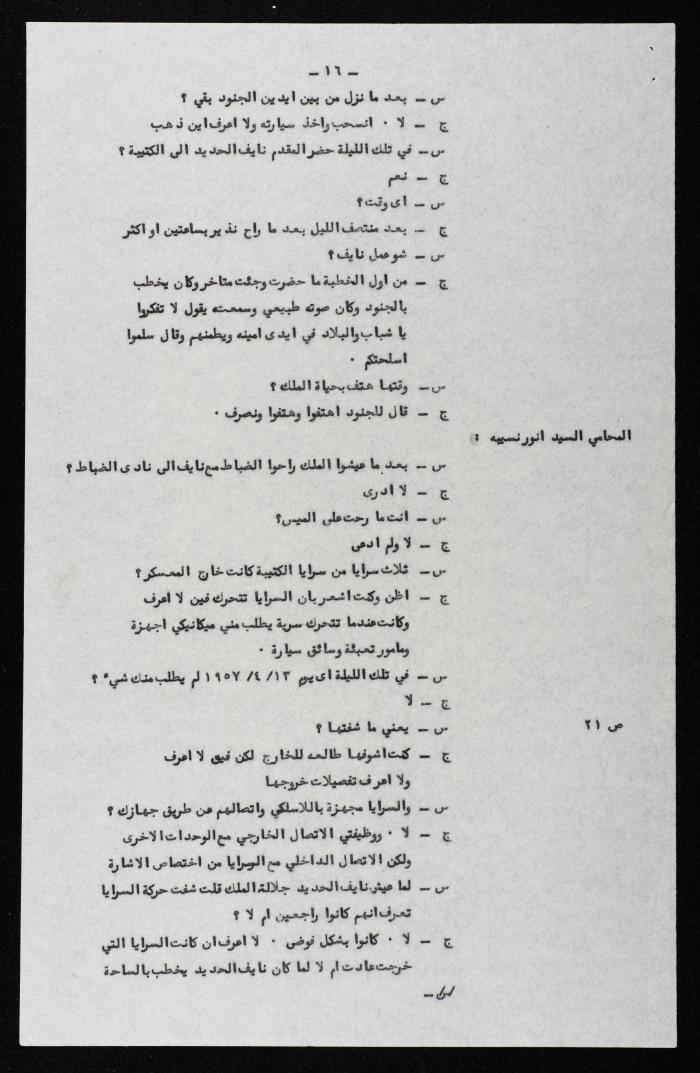 - ١٦ -
س - بعد ما نزل من بين ايدين الجنود بقي ؟
ج - لا ٠ انسحب واخذ سيارته ولا اعرف اين ذهب
س - في تلك الليلة حضر المقدم نايف الحديد الى الكتيبة ؟
ج - نعم
س - اى وقت ؟
ج - بعد منتصف الليل بعد ما راح نذير بساعتين او اكثر
س - شو عمل نايف ؟
ج - من اول الخطبة ما حضرت وجئت متاخر وكان يخطب
بالجنود وكان صوته طبيعي وسمعته يقول لا تفكروا
يا شباب والبلاد في ايدى امينه ويطمنهم وقال سلموا
اسلحتكم ٠
س - وقتها هتف بحياة الملك ؟
ج - قال للجنود اهتفوا وهتفوا ونصرف ٠
المحامي السيد انور نسيبه :
س - بعد ما عيشوا الملك راحوا الضباط مع نايف الى نادى الضباط ؟
ج - لا ادرى
س - انت ما رحت على الميس ؟
ج - لا ولم ادعى
س - ثلاث سرايا من سرايا الكتيبة كانت خارج المعسكر ؟
ج - اظن وكنت اشعر بان السرايا تتحرك فين لا اعرف
وكانت عندما تتحرك سرية يطلب مني ميكانيكي اجهزة
ومامور تعبئة وسائق سيارة ٠
س - في تلك الليلة اى يوم ١٣/ ٤/ ١٩٥٧ لم يطلب منك شيء ؟
ج - لا
س - يعني ما شفتها ؟
ص ٢١
ج - كنت اشوفها طالعه للخارج لكن فين لا اعرف
ولا اعرف تفصيلات خروجها
س - والسرايا مجهزة باللاسلكي واتصالهم عن طريق جهازك ؟
ج - لا ٠ ووظيفتي الاتصال الخارجي مع الوحدات الاخرى
ولكن الاتصال الداخلي مع السرايا من اختصاص الاشارة
س - لما عيش نايف الحديد جلالة الملك قلت شفت حركة السرايا
تعرف انهم كانوا راجعين ام لا ؟
ج - لا ٠ كانوا بشكل فوضى ٠ لا اعرف ان كانت السرايا التي
خرجت عادت ام لا لما كان نايف الحديد يخطب بالساحة